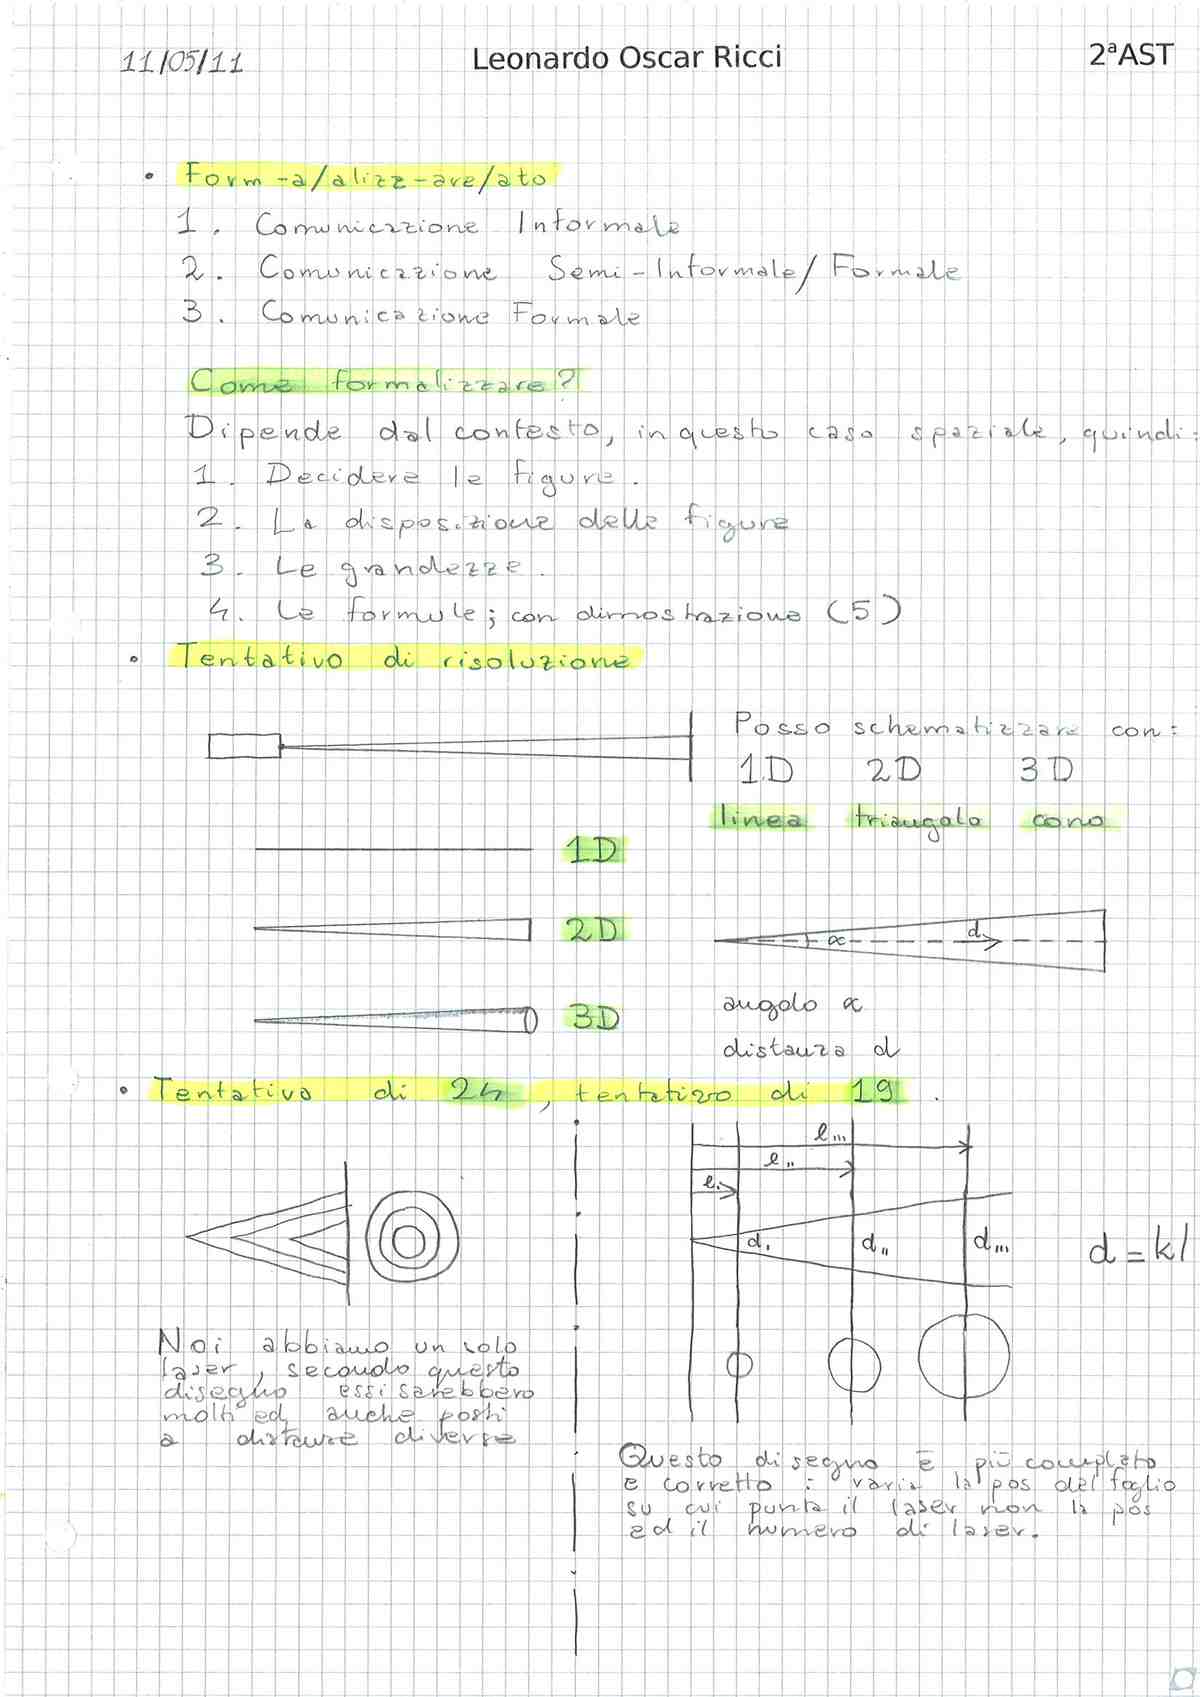 11/05/11 Leonardo Oscar Ricci 2ªAST
• Form-a/alizz-are/ato
1. Comunicazione Informale
2. Comunicazione Semi-Informale/Formale
3. Comunicazione Formale
Come formalizzare?
Dipende dal contesto, in questo caso spaziale, quindi:
1. Decidere le figure.
2. La disposizione delle figure
3. Le grandezze.
4. Le formule; con dimostrazione (5)
• Tentativo di risoluzione
Posso schematizzare con:
1D 2D 3D
linea triangolo cono
1D
2D
α d
3D
angolo α
distanza d
• Tentativo di 24, tentativo di 19.
l'''
l''
l'
d' d'' d''' d = kl
Noi abbiamo un solo
laser, secondo questo
disegno essi sarebbero
molti ed anche posti
a distanze diverse
Questo disegno è più completo
e corretto: varia la pos del foglio
su cui punta il laser non la pos
ed il numero di laser.